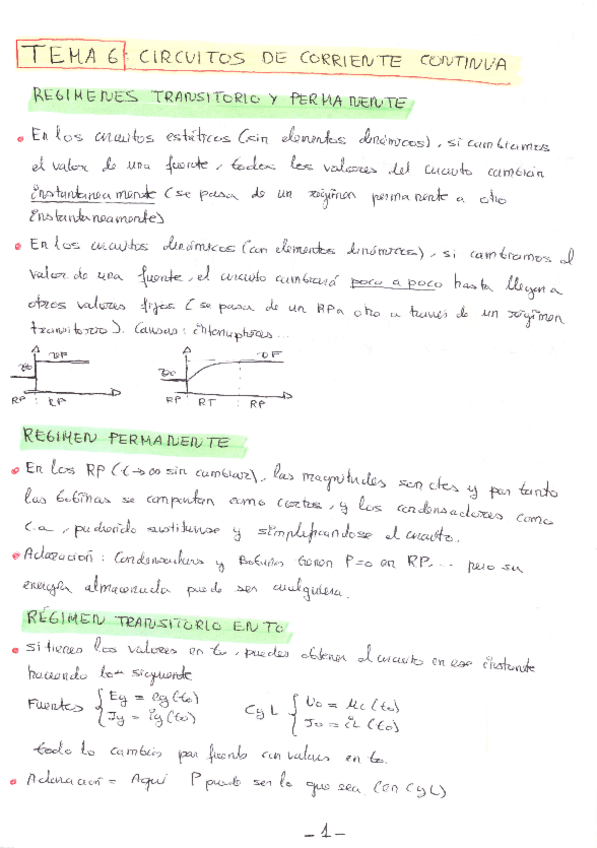 TEMA 6: CIRCUITOS DE CORRIENTE CONTINUA
REGIMENES TRANSITORIO Y PERMANENTE
En los circuitos estáticos (sin elementos dinámicos), si cambiamos
el valor de una fuente, todos los valores del circuito cambian
instantaneamente (se pasa de un régimen permanente a otro
instantaneamente)
En los circuitos dinámicos (con elementos dinámicos), si cambiamos el
valor de una fuente, el circuito cambiará poco a poco hasta llegar a
otros valores fijos (se pasa de un RP a otro a través de un régimen
transitorio). Causas: interruptores...
vo vF
RP RP
vo vF
RP RT RP
REGIMEN PERMANENTE
En los RP (t→∞ sin cambiar), las magnitudes son ctes y por tanto
las bobinas se comportan como cortos, y los condensadores como
c.a, pudiendo sustituirse y simplificandose el circuito.
Aclaración: Condensadores y Bobinas tienen P=0 en RP... pero su
energía almacenada puede ser cualquiera.
RÉGIMEN TRANSITORIO EN TO
si tienes los valores en to, puedes obtener el circuito en ese instante
haciendo lo siguiente
Fuentes { Eg = eg(to)
Jg = ig(to)
C y L { Uo = uc(to)
Jo = iL(to)
todo lo cambias por fuentes con valores en to.
Aclaración = Aquí P puede ser lo que sea. (en C y L)
-1-